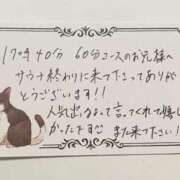 17時40分 60分コースのお兄様へ
サウナ終わりに来て下さってありが
とうございます!!
人気出るなって言ってくれて嬉し
かったです また来て下さい!